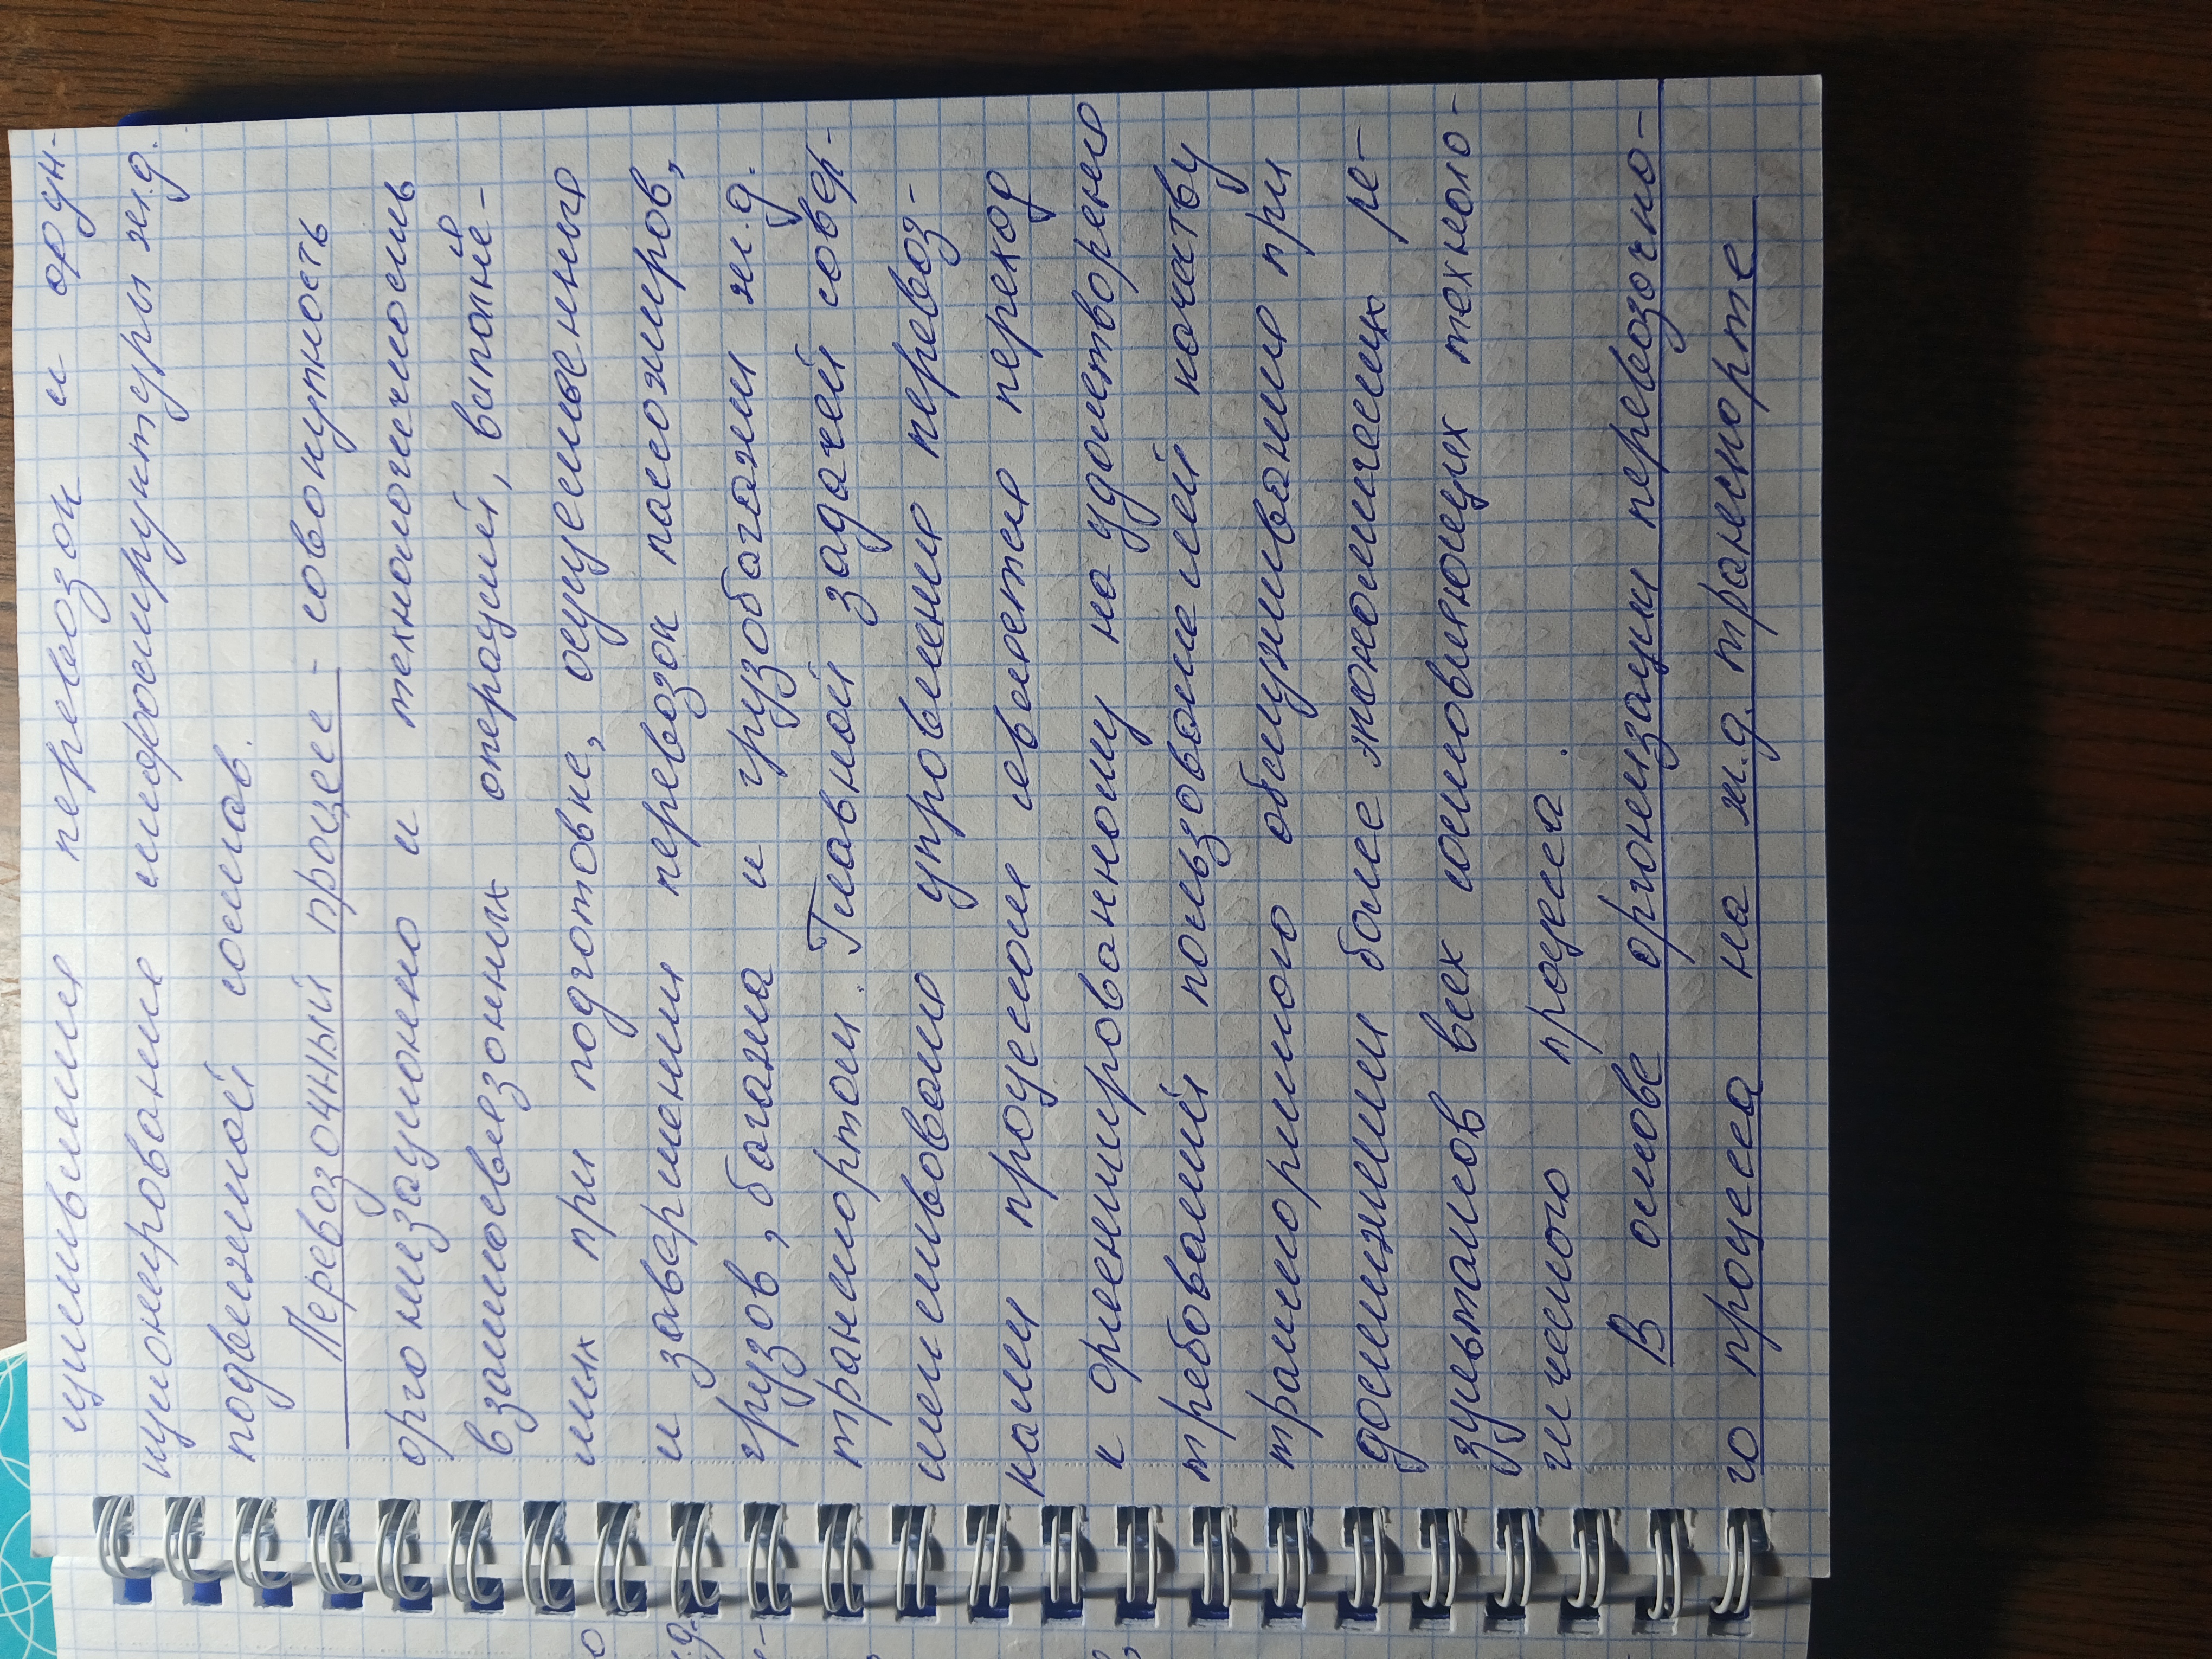 ществление перевозок и фун-
кционирование инфраструктуры ж.д.
подвижной состав.
Перевозочный процесс - совокупность
организационно и технологическость
взаимосвязонных операций, выполне-
мых при подготовке, осуществления
и завершении перевозок пассажиров,
грузов, багажа и грузобагажи ж.д.
транспортом. Главной задачей совер-
шенствования управления перевоз-
ками процессом является переход
к ориентированному на удовлетворение
требований пользователей качеству
транспортного обслуживания при
достижении более экономических ре-
зультатов всех составляющих техноло-
гического процесса.
В основе организации перевозочно-
го процесса на ж.д. транспорте